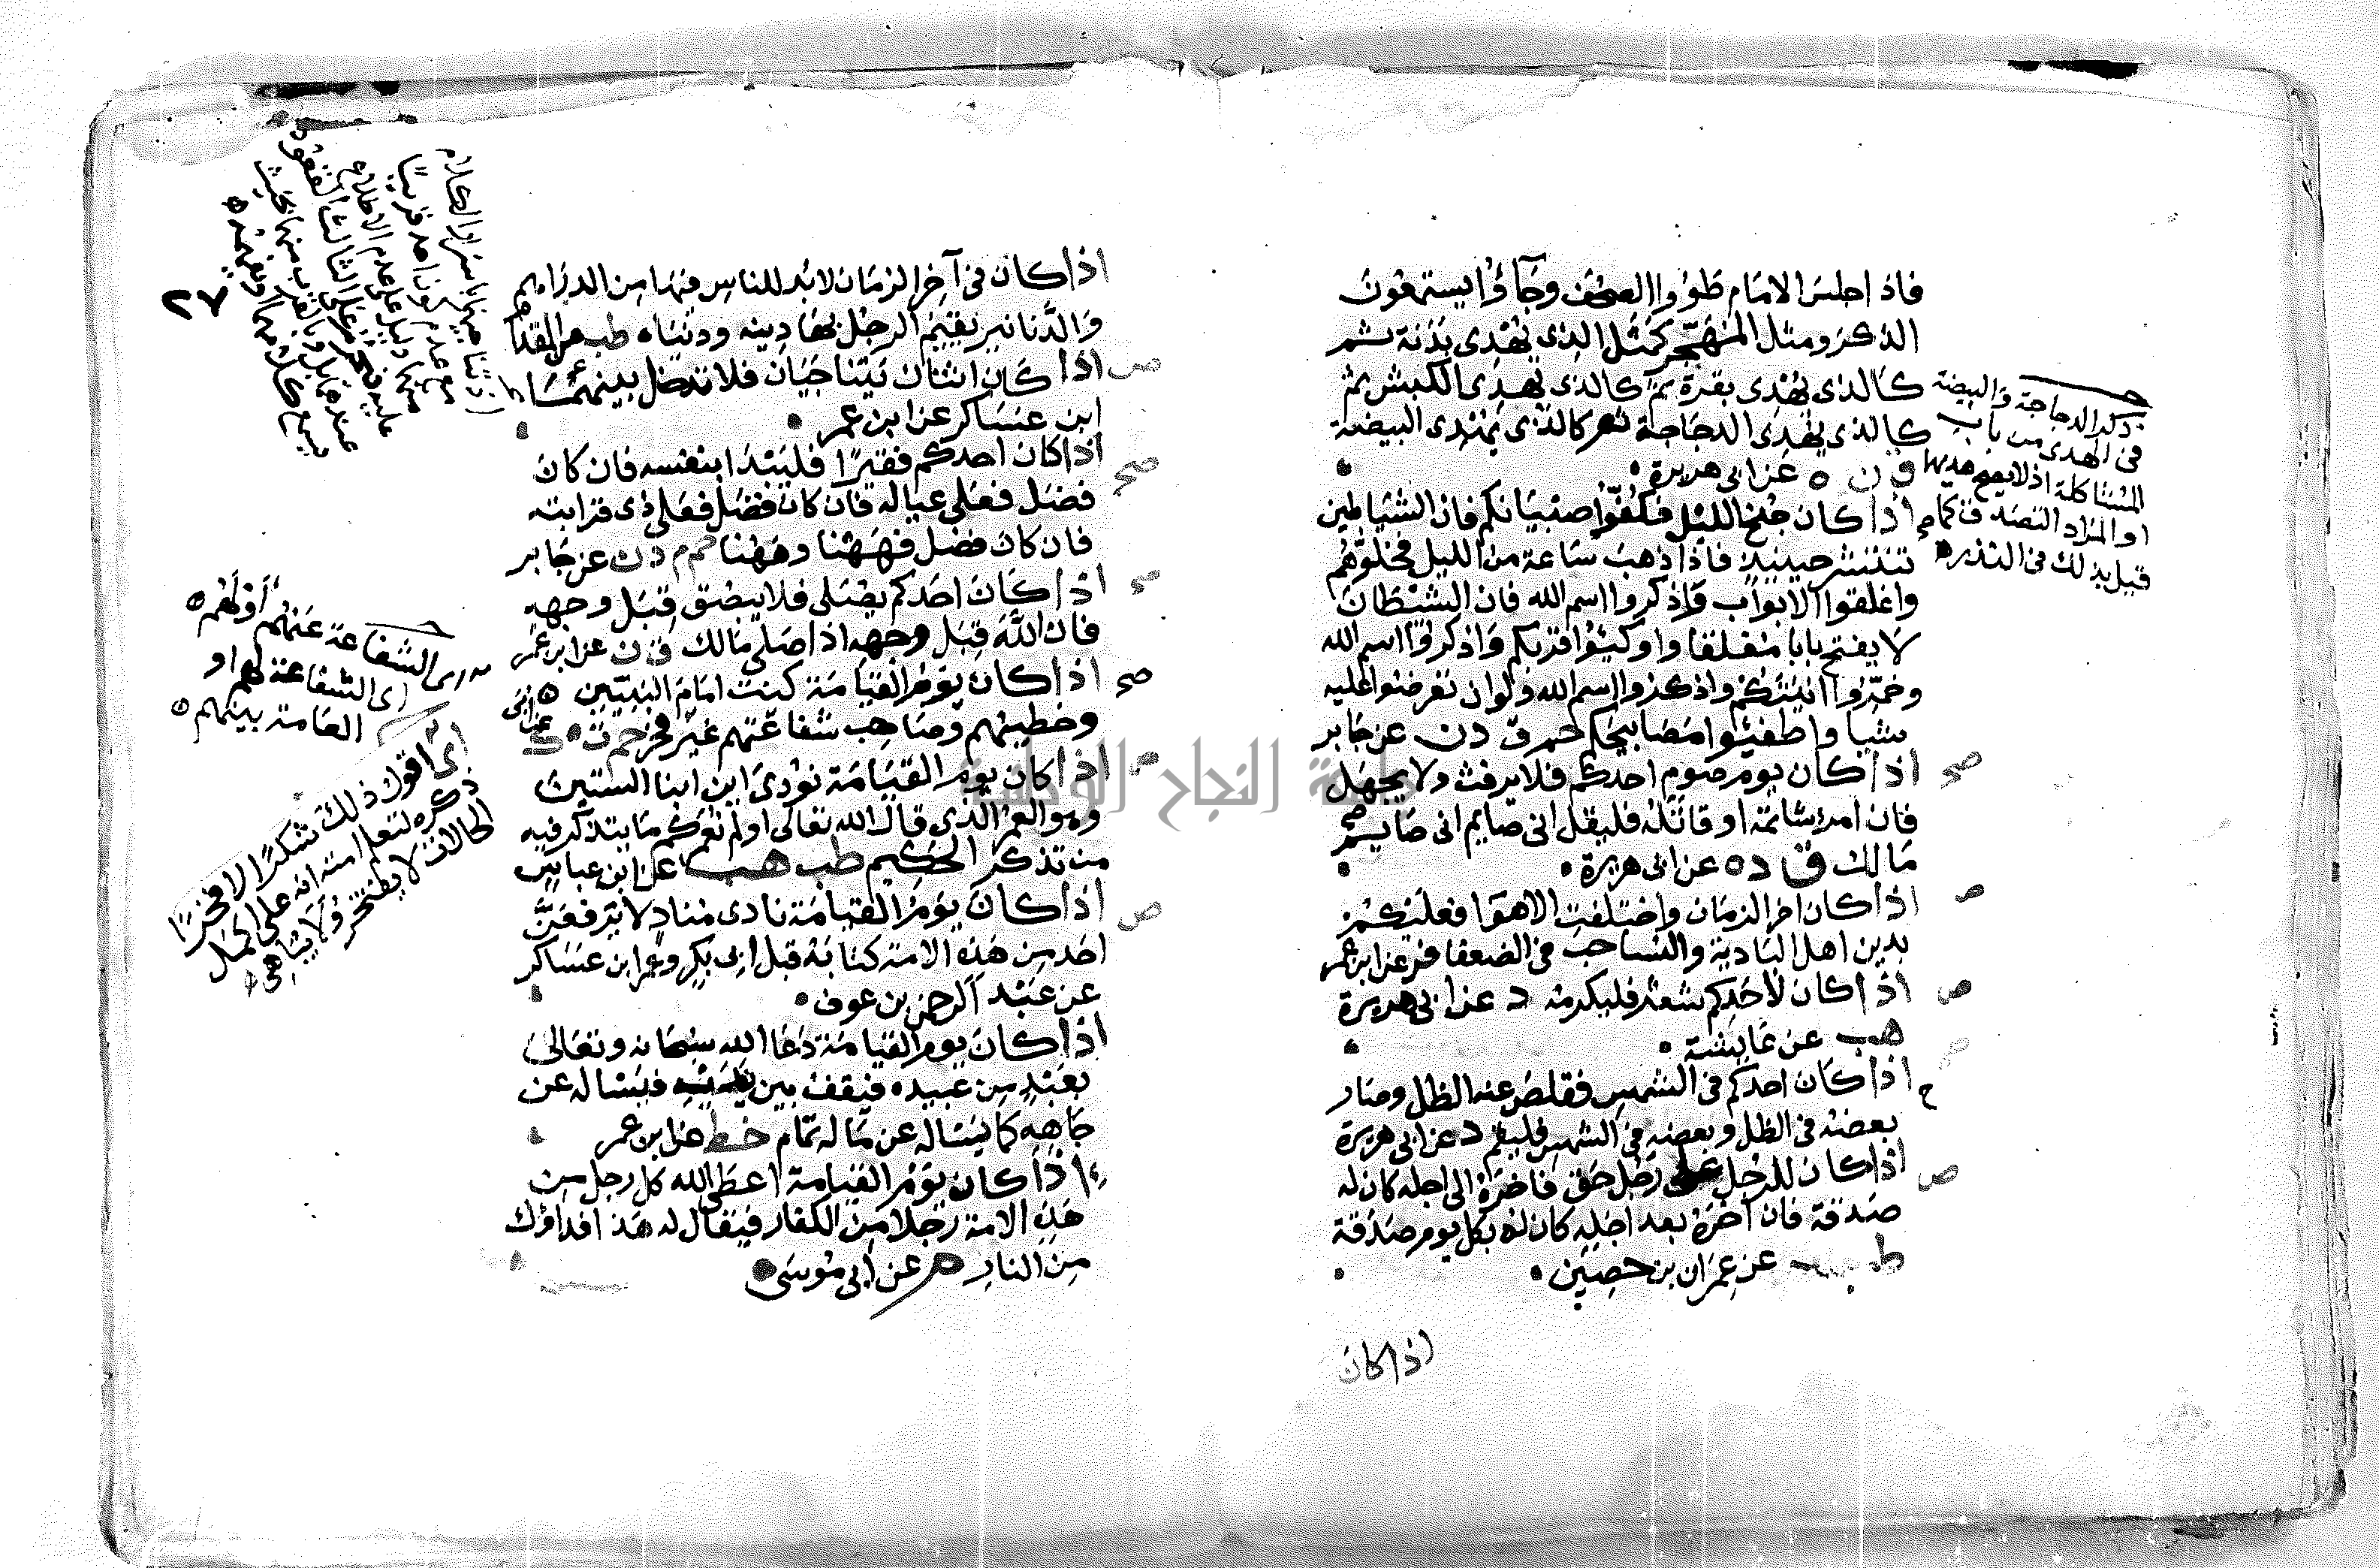 فاذا جلس الامام طووا الصحف وجاؤا يستمعون
الذكر ومثل المهجر كمثل الذي يهدى بدنة ثم
كالذى يهدى بقرة ثم كالذى يهدى الكبش ثم
كالذى يهدى الدجاجة ثم كالذى يهدى البيضة
ق ن ه عن ابى هريرة
اذا كان جنح الليل فكفوا صبيانكم فان الشياطين
تنتشر حينيذ فاذا ذهب ساعة من الليل فخلوهم
واغلقوا الابواب واذكروا اسم الله فان الشيطان
لا يفتح بابا مغلقا واوكيئوا قربكم واذكروا اسم الله
وخمروا انيتكم واذكروا اسم الله ولو ان تعرضوا عليه
شيا واطفيئوا مصابيحكم حم ق د ن عن جابر
اذا كان يوم صوم احدكم فلا يرفث ولا يجهل
فان امرؤ شاتمه او قاتله فليقل انى صايم انى صايم
مالك ق د ه عن ابى هريرة
اذا كان اخر الزمان واختلفت الاهوا فعليكم
بدين اهل البادية والنسا حب فى الضعفا فر عن ابن عمر
اذا كان لاحدكم شعر فليكرمه د عن ابى هريرة
هب عن عايشة
اذا كان احدكم فى الشمس فقلص عنه الظل وصار
بعضه فى الظل وبعضه فى الشمس فليقم د عن ابى هريرة
اذا كان للرجل على رجل حق فاخره الى اجله كان له
صدقة فان اخره بعد اجله كان له بكل يوم صدقة
طب عن عمران بن حصين
اذا كان
ذكر الدجاجة والبيضة
فى الهدى من باب
المشاكلة اذ لا يصح هديها
او المراد التصدق كما
قيل بذلك فى النذر
اذا كان فى آخر الزمان لابد للناس فيها من الدراهم
والدنانير يقيم الرجل بها دينه ودنياه طب عن المقدام
اذا كان اثنان يتناجيان فلا تدخل بينهما
ابن عساكر عن ابن عمر
اذا كان احدكم فقيرا فليبدا بنفسه فان كان
فضل فعلى عياله فان كان فضل فعلى ذى قرابته
فان كان فضل فههنا وههنا حم م د ن عن جابر
اذا كان احدكم يصلى فلا يبصق قبل وجهه
فان الله قبل وجهه اذا صلى مالك ق ن عن ابن عمر
اذا كان يوم القيامة كنت امام النبيين
وخطيبهم وصاحب شفاعتهم غير فخر حم ت ه ك عن ابى
اذا كان يوم القيامة نودى اين ابنا الستين
وهو العمر الذى قال الله تعالى اولم نعمركم ما يتذكر فيه
من تذكر الحكيم طب هب عن ابن عباس
اذا كان يوم القيامة نادى مناد لا يرفعن
احد من هذه الامة كتابه قبل ابى بكر وعمر ابن عساكر
عن عبد الرحمن بن عوف
اذا كان يوم القيامة دعا الله سبحانه وتعالى
بعبد من عبيده فيقف بين يديه فيساله عن
جاهه كما يساله عن ماله تمام خط عن ابن عمر
اذا كان يوم القيامة اعطى الله كل رجل من
هذه الامة رجلا من الكفار فيقال له هذا فداؤك
من النار م عن ابى موسى
٢٨
اى الشفاعة عنهم او لهم
اى الشفاعة لهم او
العامة بينهم
اى اقول ذلك شكرا لا فخرا
ذكره لتعلم امته انه على اكمل
الحالات لا يفتخر ولا يباهى